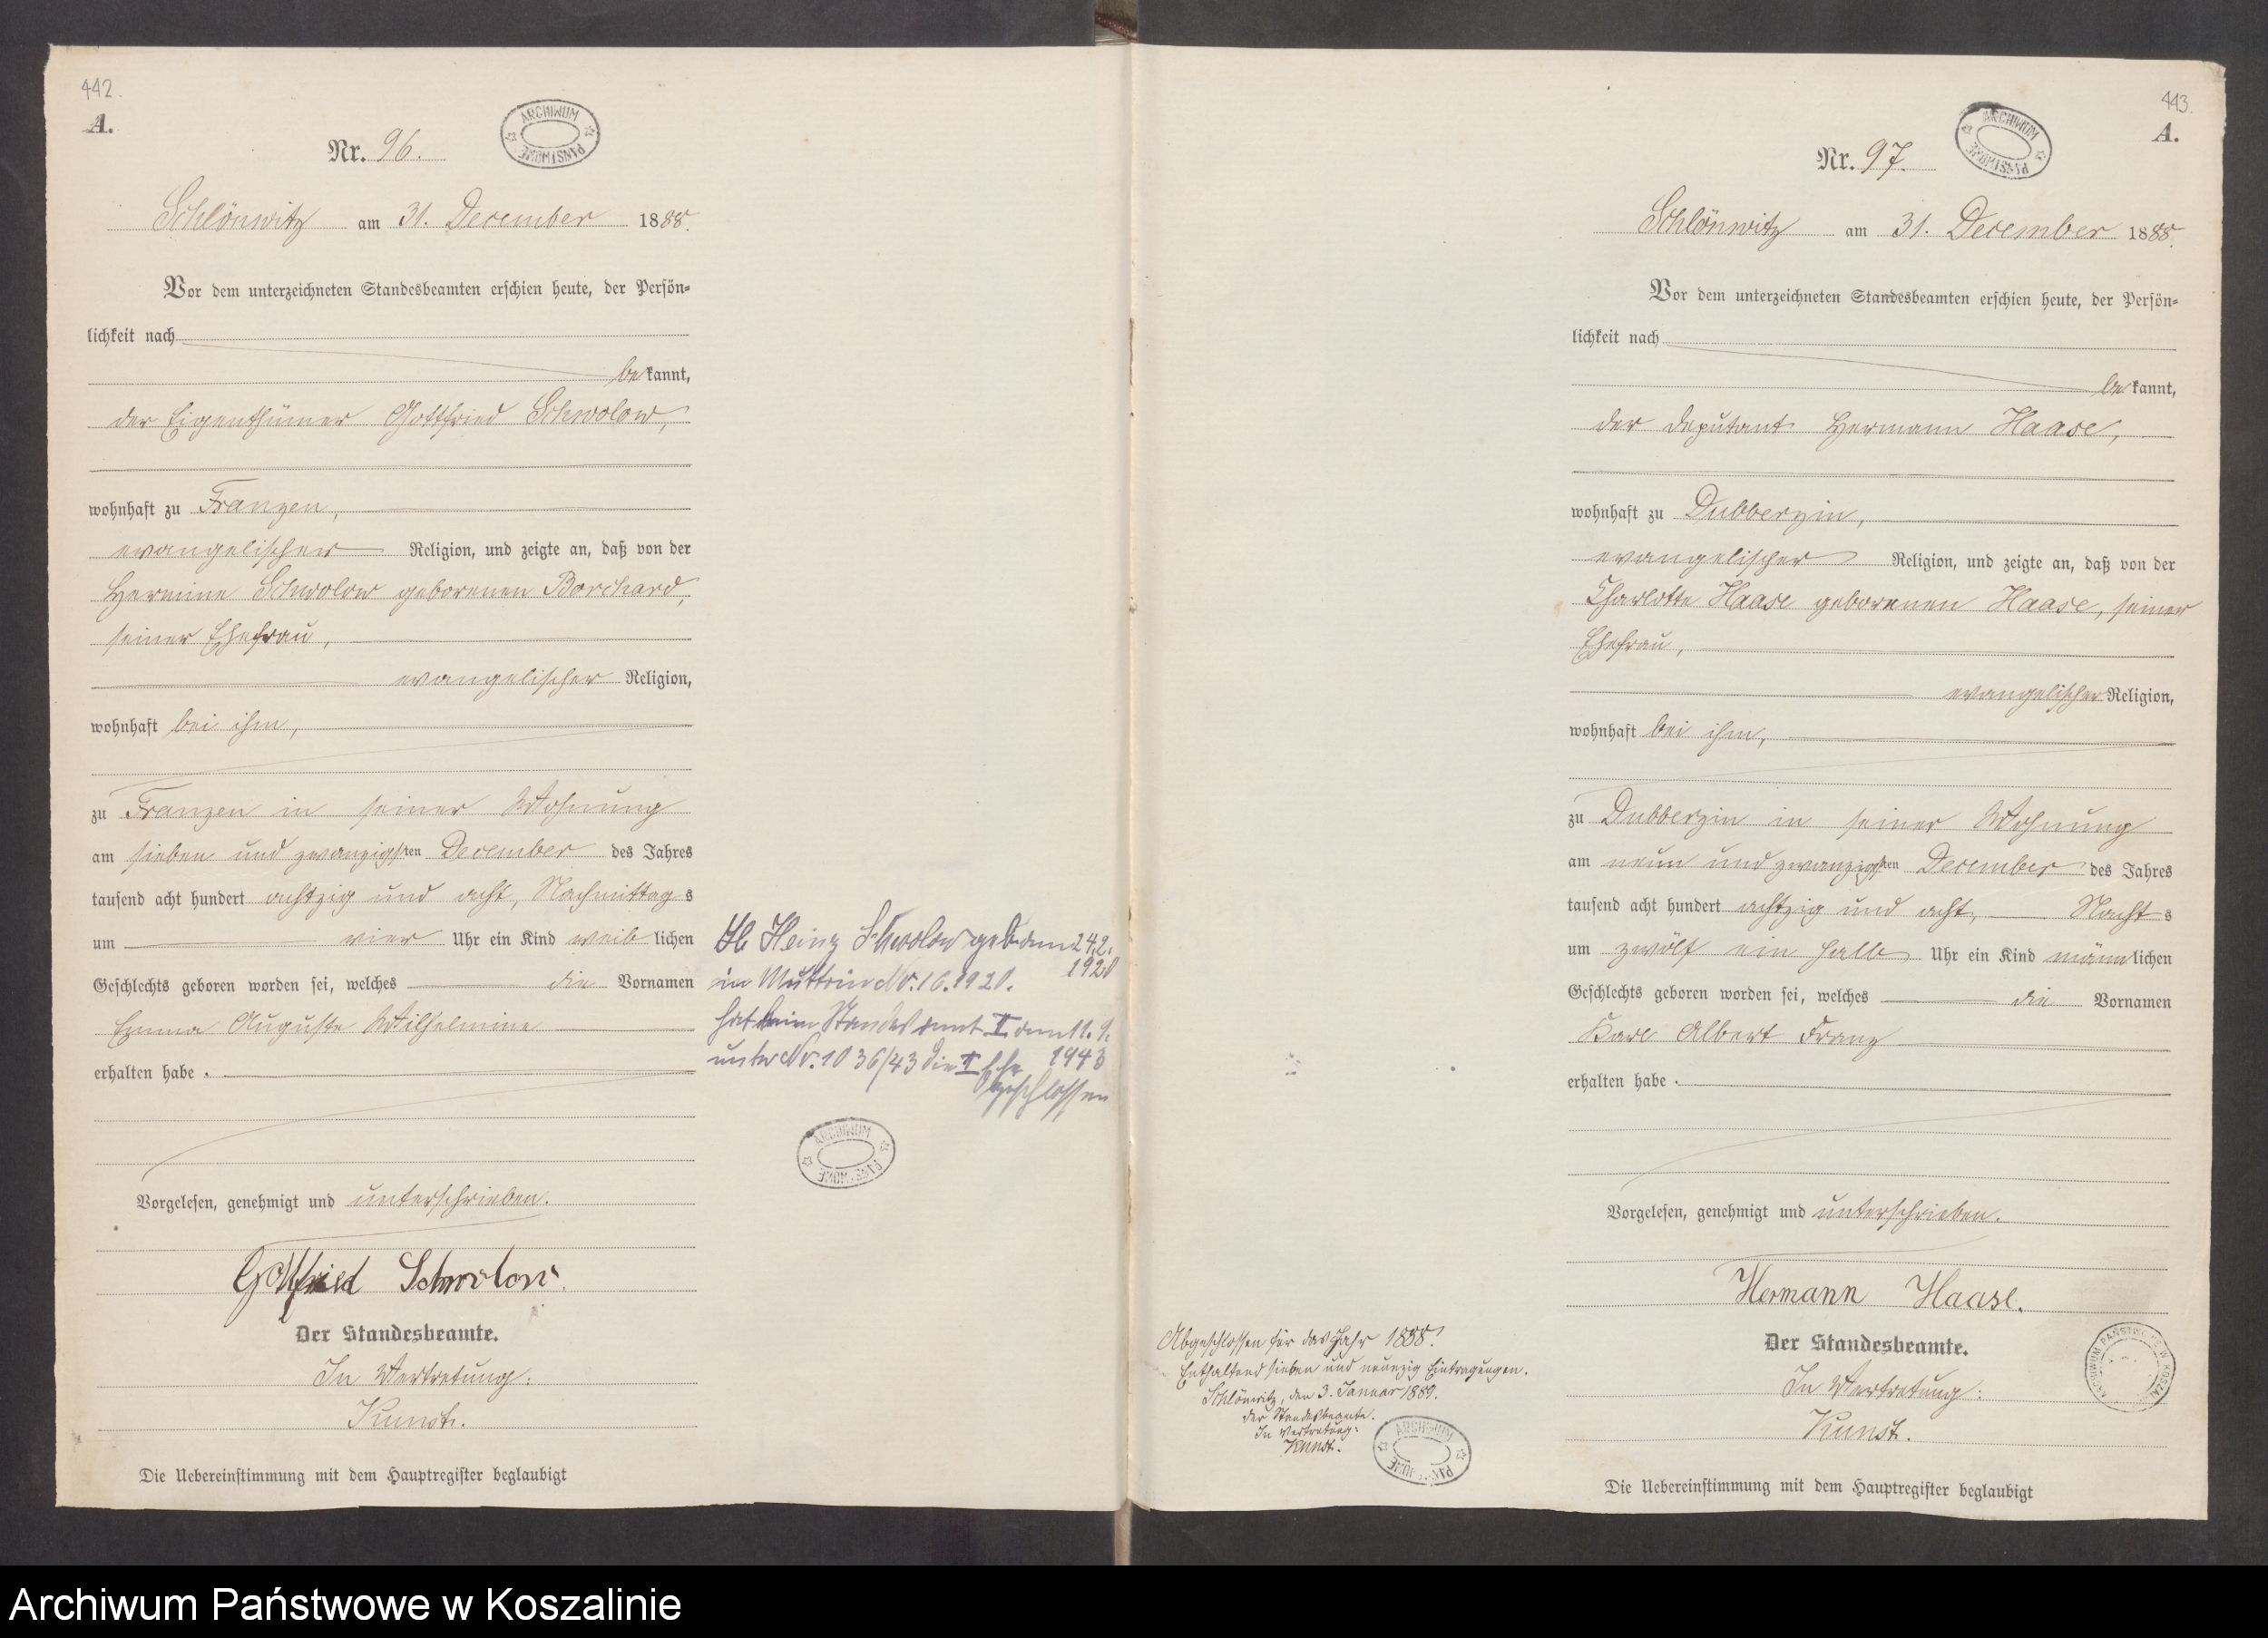 442.
A.
Nr. 96.
ARCHIWUM PAŃSTWOWE
Schlönwitz am 31. December 1888.
Vor dem unterzeichneten Standesbeamten erschien heute, der Persön-
lichkeit nach
bekannt,
der Eigenthümer Gottfried Schwolow,
wohnhaft zu Franzen,
evangelischer Religion, und zeigte an, daß von der
Hermine Schwolow geborenen Borchard,
seiner Ehefrau,
evangelischer Religion,
wohnhaft bei ihm,
zu Franzen in seiner Wohnung
am sieben und zwanzigsten December des Jahres
tausend acht hundert achtzig und acht, Nachmittags
um vier Uhr ein Kind weiblichen
Geschlechts geboren worden sei, welches die Vornamen
Emma Auguste Wilhelmine
erhalten habe.
Vorgelesen, genehmigt und unterschrieben.
Gottfried Schwolow.
Der Standesbeamte.
In Vertretung:
Kunst.
Die Uebereinstimmung mit dem Hauptregister beglaubigt
Heinz Schwolow geb. am 24.2.
1920
in Muttrin No. 16.1920.
hat beim Standesamt I am 11.9.
unter No. 1036/43 die I Ehe 1943
geschlossen
ARCHIWUM PAŃSTWOWE
443.
A.
Nr. 97.
ARCHIWUM PAŃSTWOWE
Schlönwitz am 31. December 1888.
Vor dem unterzeichneten Standesbeamten erschien heute, der Persön-
lichkeit nach
bekannt,
der Deputant Hermann Haase,
wohnhaft zu Dubberzin,
evangelischer Religion, und zeigte an, daß von der
Charlotte Haase geborenen Haase, seiner
Ehefrau,
evangelischer Religion,
wohnhaft bei ihm,
zu Dubberzin in seiner Wohnung
am neun und zwanzigsten December des Jahres
tausend acht hundert achtzig und acht, Nachts
um zwölf ein halb Uhr ein Kind männlichen
Geschlechts geboren worden sei, welches die Vornamen
Karl Albert Franz
erhalten habe.
Vorgelesen, genehmigt und unterschrieben.
Hermann Haase.
Der Standesbeamte.
In Vertretung:
Kunst.
Die Uebereinstimmung mit dem Hauptregister beglaubigt
Abgeschlossen für das Jahr 1888.
Enthaltend sieben und neunzig Eintragungen.
Schlönwitz, den 3. Januar 1889.
Der Standesbeamte.
In Vertretung:
Kunst.
ARCHIWUM PAŃSTWOWE
Archiwum Państwowe w Koszalinie